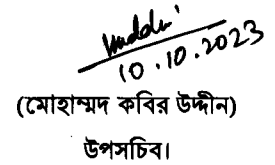 10.10.2023
(মোহাম্মদ কবির উদ্দীন)
উপসচিব।